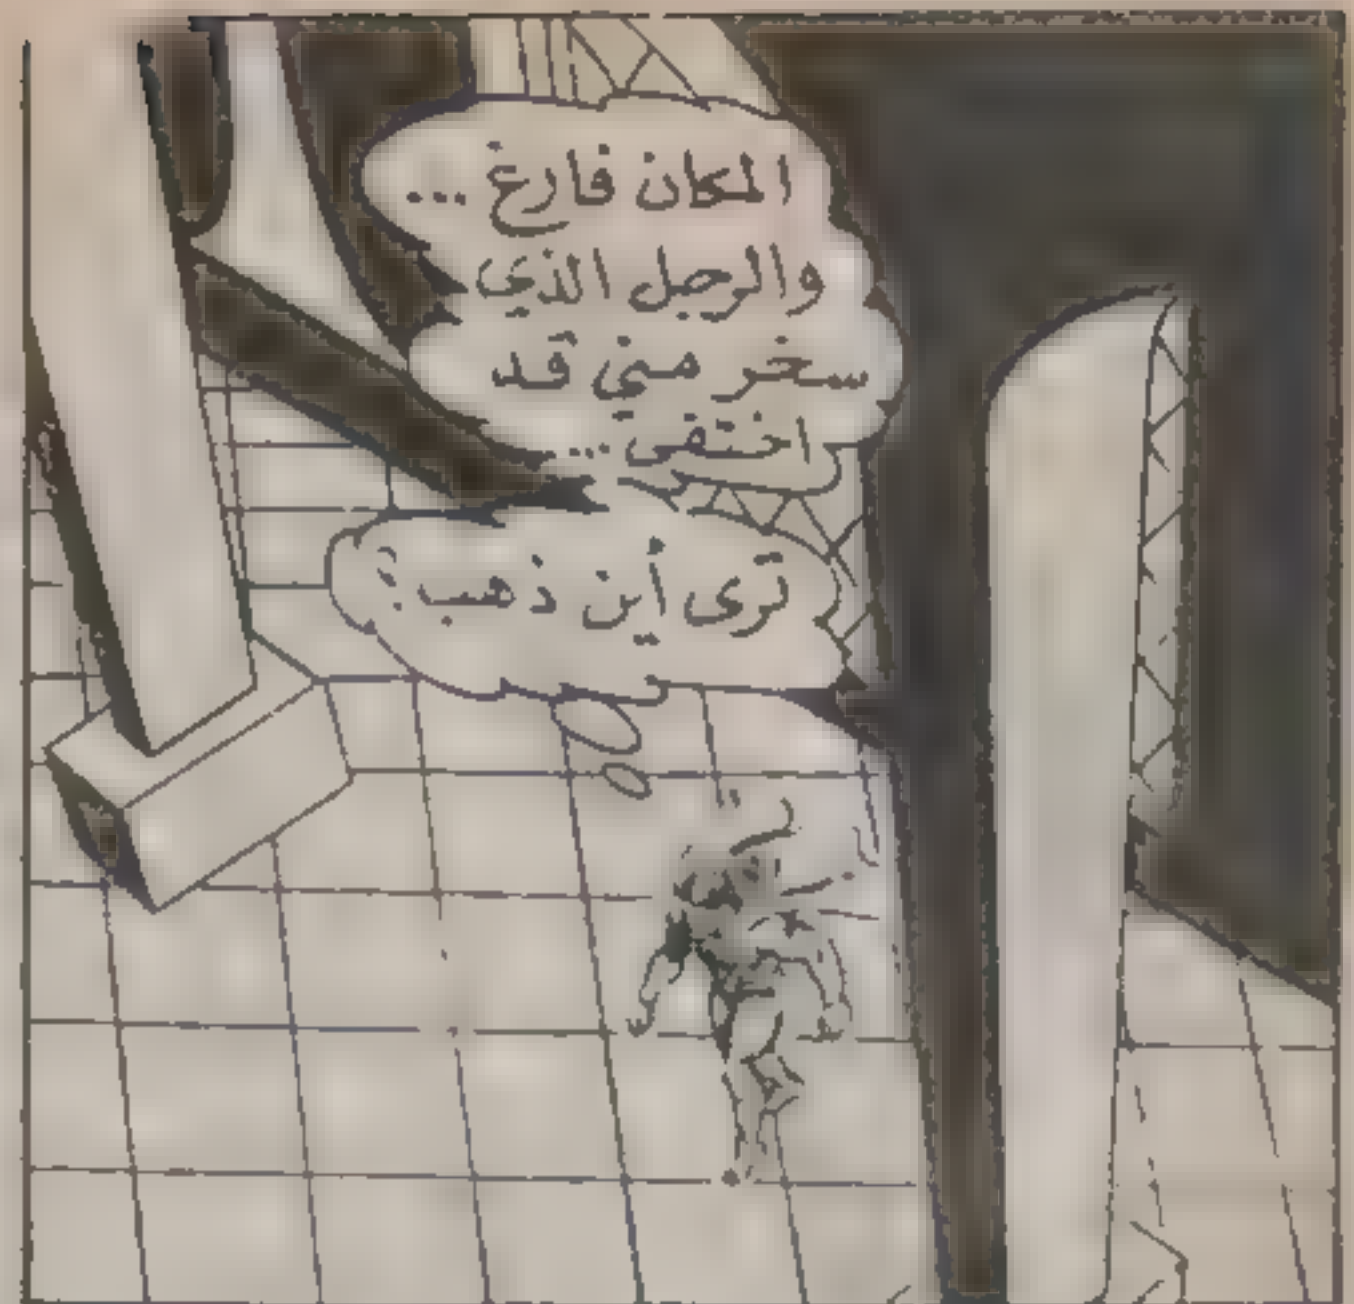 المكان فارغ ...
والرجل الذي
سخر مني قد
اختفى ...
ترى أين ذهب ؟